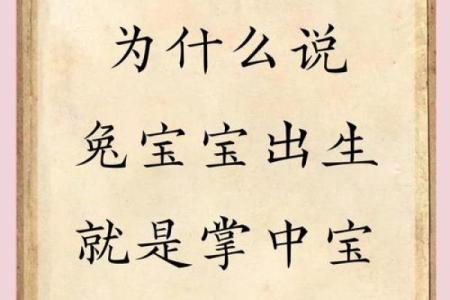 为什么说
兔宝宝出生
就是掌中宝